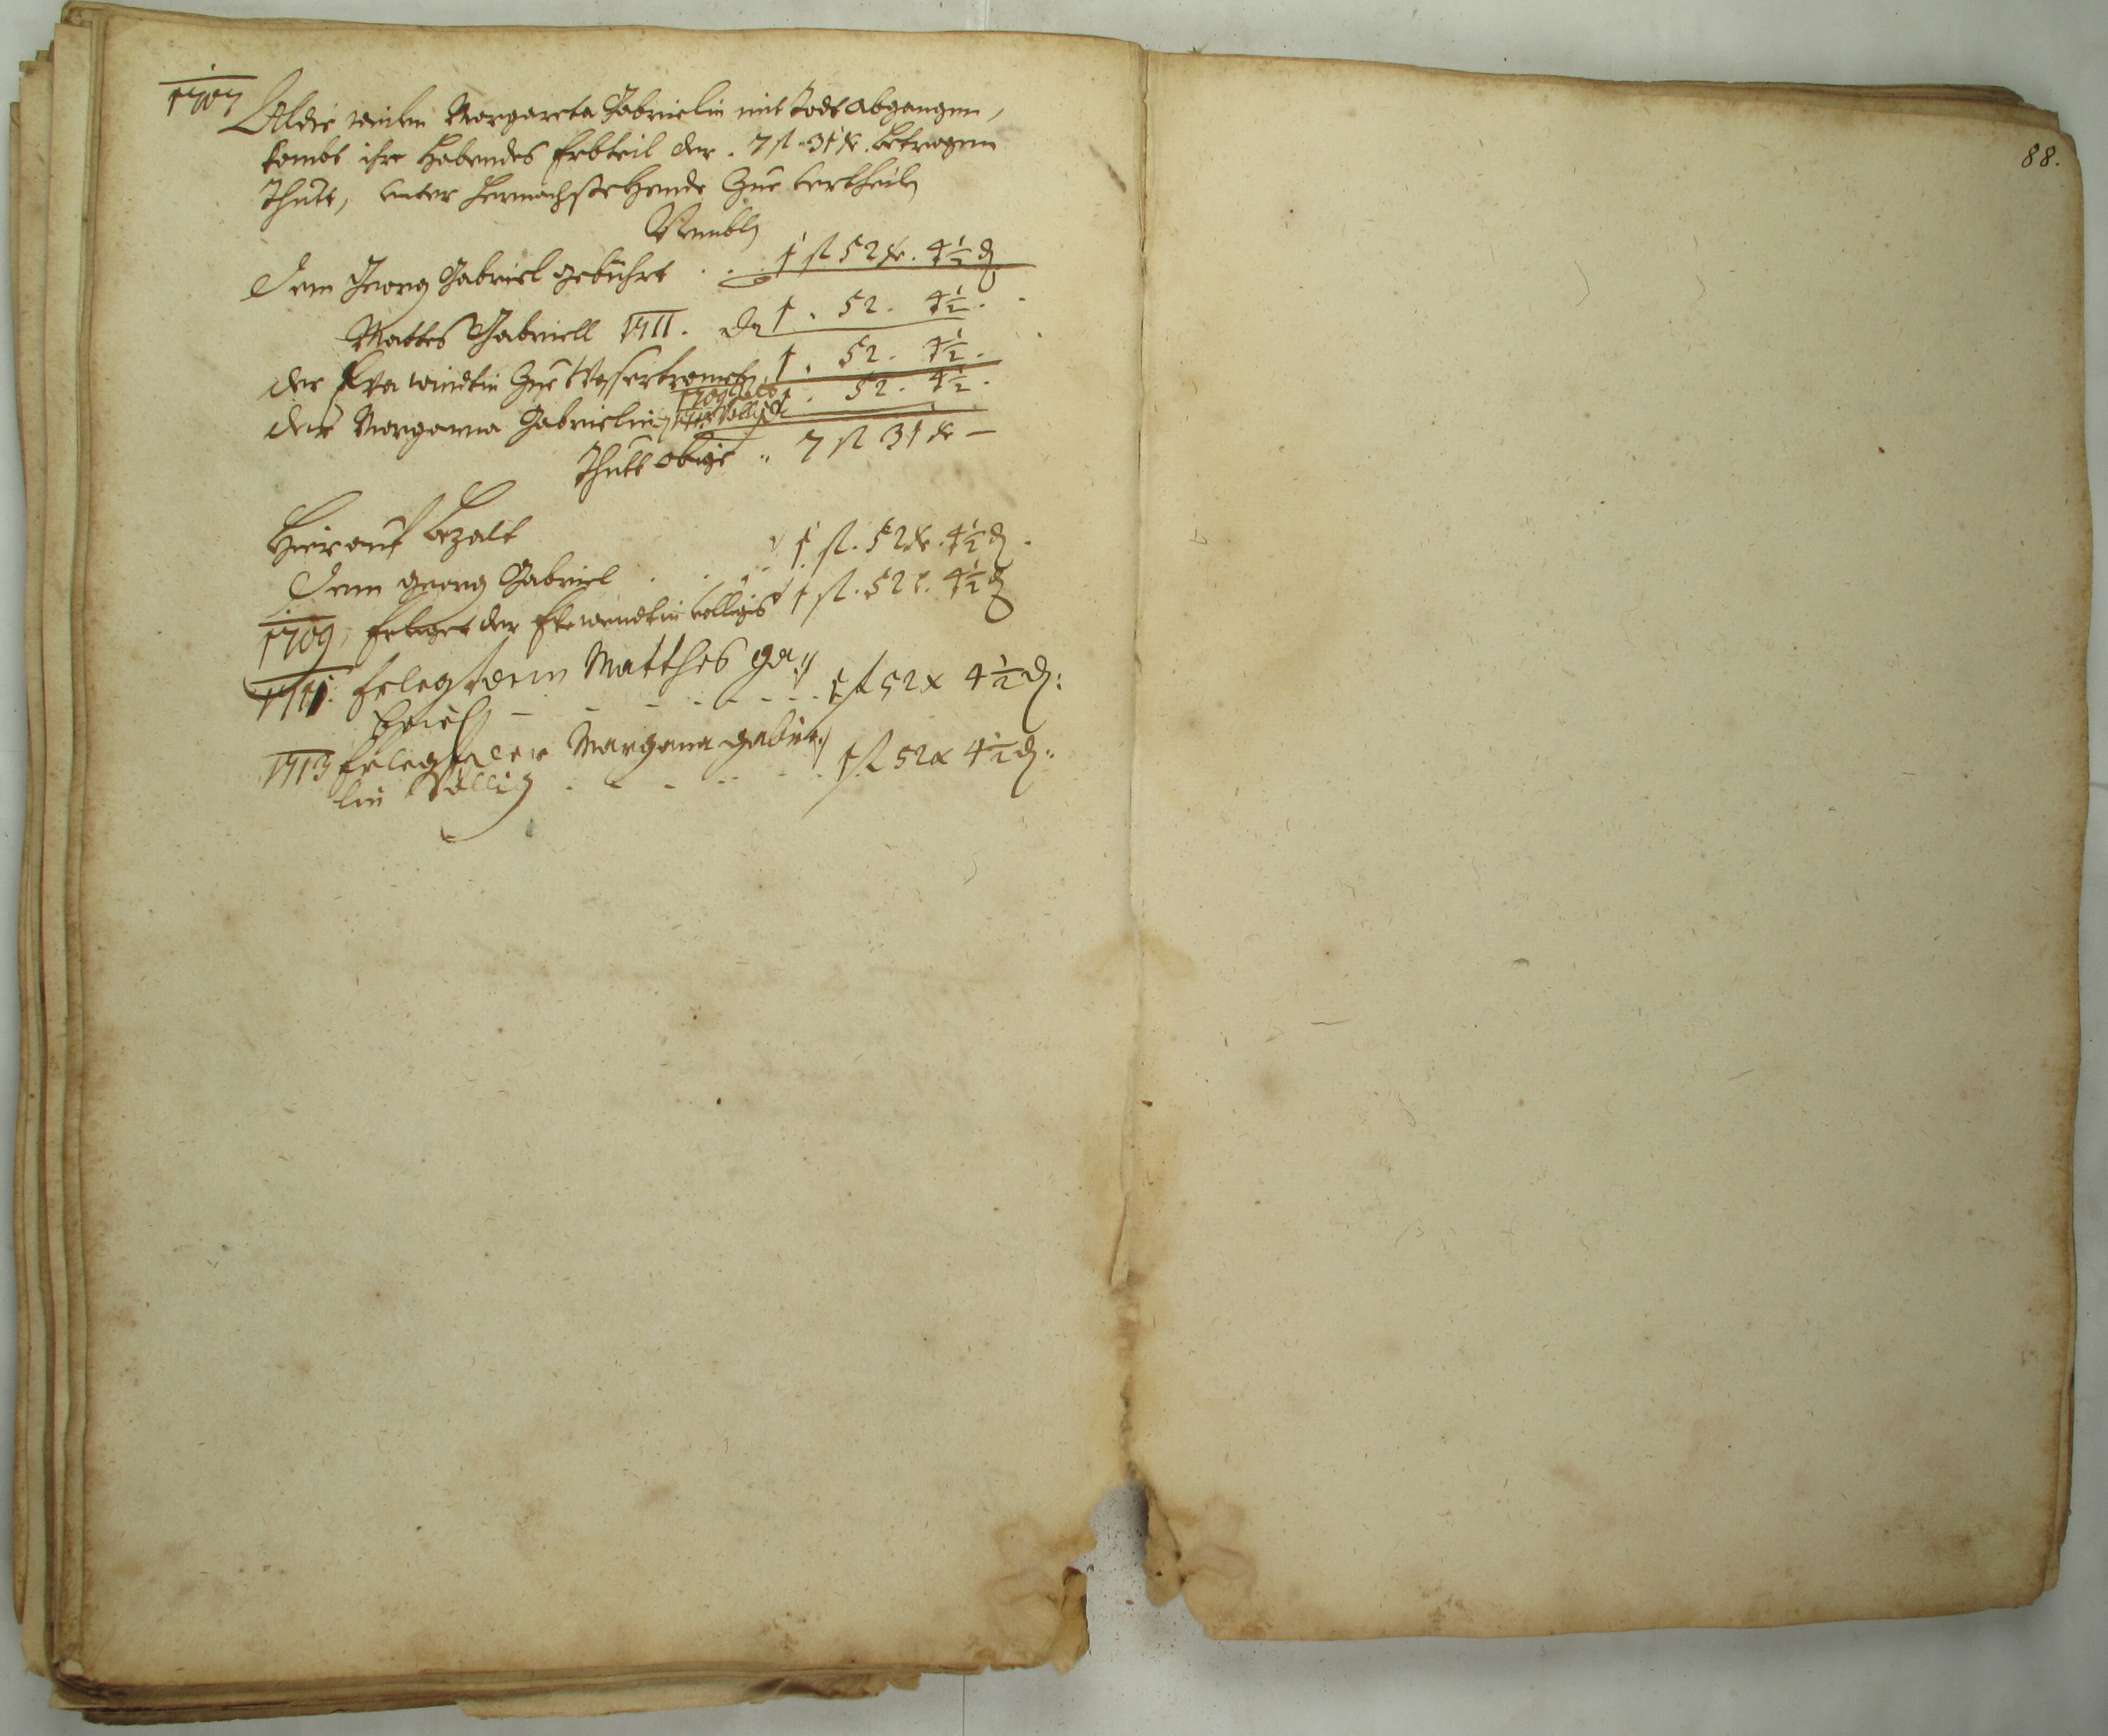 1707 Aldie weilen Margareta Gabrielin mit Todt abgangen,
kombt ihre habendes Erbteil der . 7 fl . 31 kr . betragen
Thutt, unter hernachstehende Zue vertheilen
Nembl
Dem Georg Gabriel gebührt . . 1 fl 52 kr . 4½ d
Mattes Gabriell 1711 . 1 . 52 . 4½ .
der Eva windtin Zue 1 . 52 . 4½ .
der Margarina Gabrielin 1 . 52 . 4½ .
Thutt obige " 7 fl 31 kr —
Hierauf bezalt
Dem georg Gabriel . . . 1 fl . 52 kr . 4½ d .
1709, Erleget der Eva windtin völligs 1 fl . 52 . 4½ d
1711: Erlegt dem Matthes ga://
briel — — — 1 fl 52 x 4½ d:
1713 Erlegt der Margarina gabrie://
lin Völlig . . . 1 fl 52 x 4½ d:
88.